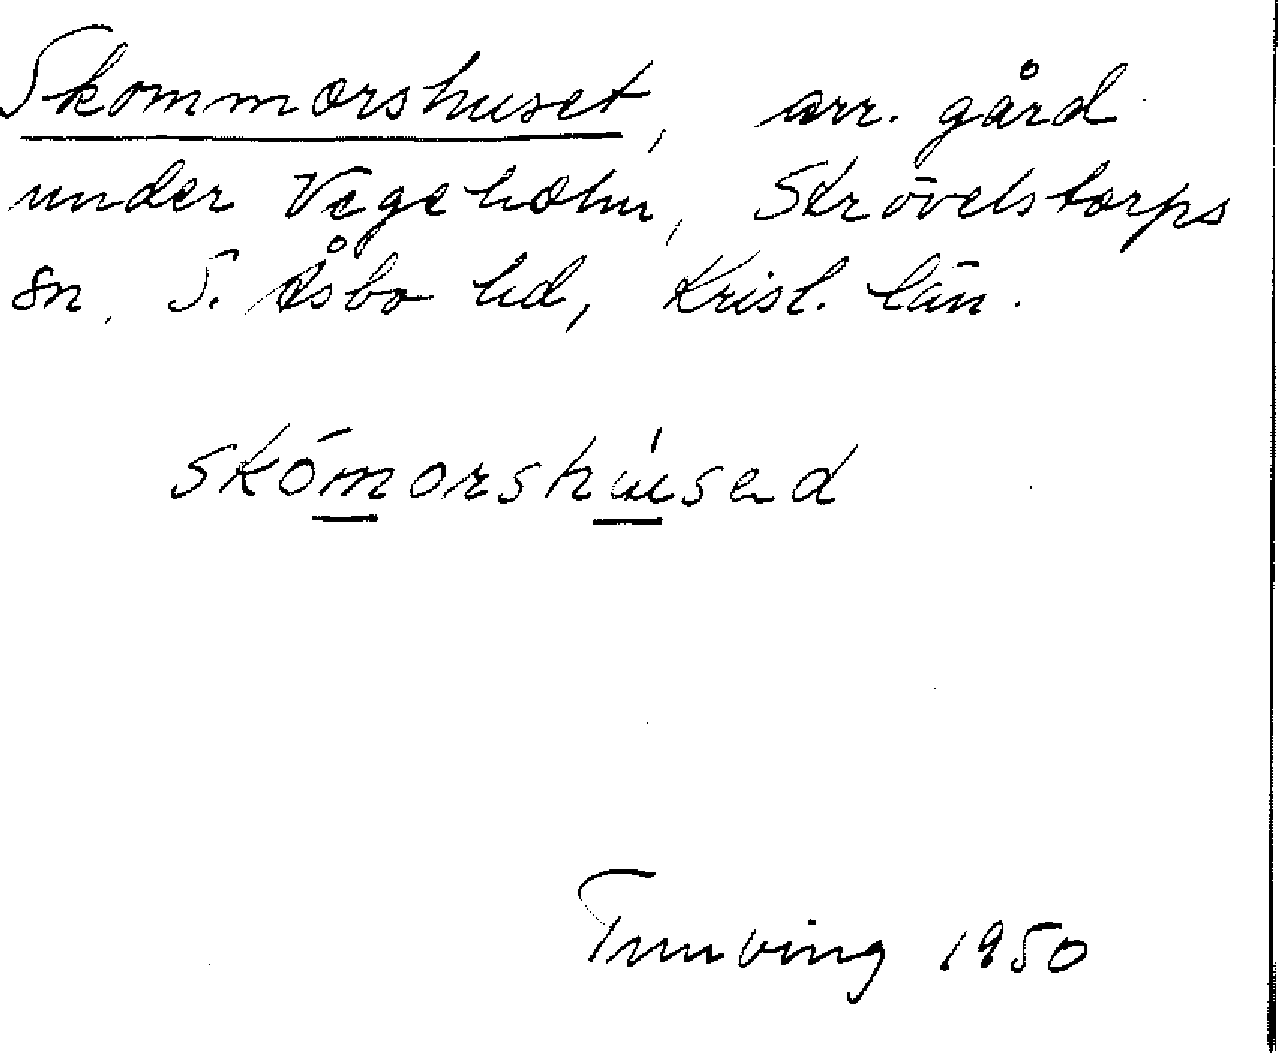 Skommorshuset, arr. gård
under Vegeholm, Strövelstorps
sn, S. Åsbo hd, Krist. län.
skómorshúsed
1950